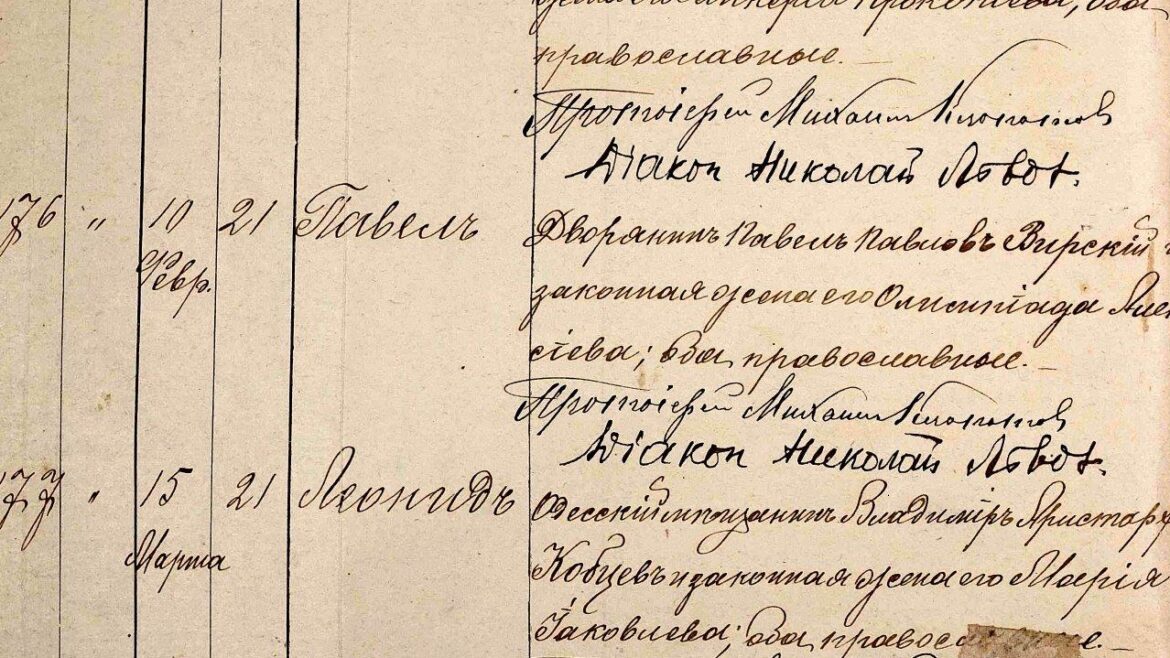 православные. —
Протоіерей Михаилъ Клопотовъ
Діакон Николай Львов.
176 " 10 21 Павелъ Дворянинъ Павелъ Павловъ Вирскій и
Февр. законная жена его Олимпіада Алек
сіева; оба православные. —
Протоіерей Михаилъ
Діакон Николай Львов.
177 " 15 21 Леонидъ Одесскій мѣщанинъ Владиміръ Аристарх
Марта Кобцевъ и законная жена его Марія
Іаковлева; оба